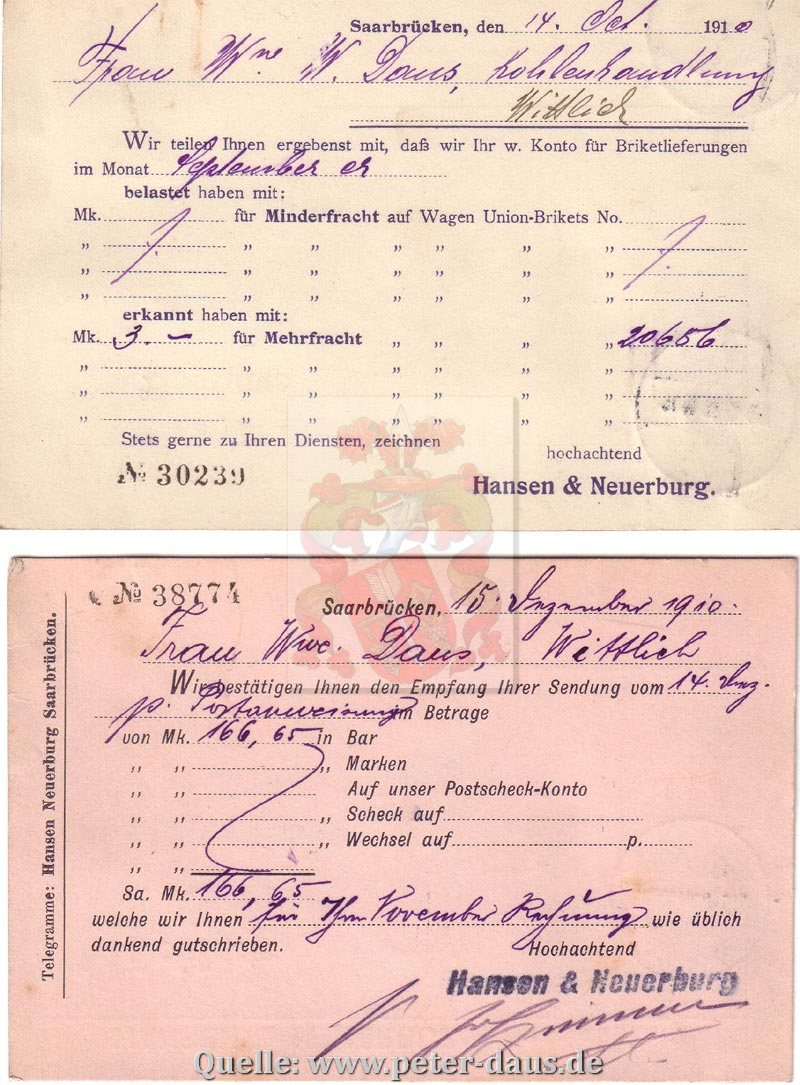 Saarbrücken, den 14. Oct. 1910
Frau Wwe W. Daus, Kohlenhandlung
Wittlich
Wir teilen Ihnen ergebenst mit, daß wir Ihr w. Konto für Briketlieferungen
im Monat September cr
belastet haben mit:
Mk. /. für Minderfracht auf Wagen Union-Brikets No. /.
„ „ „ „ „ „ „
„ „ „ „ „ „ „
„ „ „ „ „ „ „
erkannt haben mit:
Mk. 3.— für Mehrfracht „ „ „ „ 20656
„ „ „ „ „ „ „
„ „ „ „ „ „ „
„ „ „ „ „ „ „
Stets gerne zu Ihren Diensten, zeichnen
hochachtend
№ 30239
Hansen & Neuerburg.
Telegramme: Hansen Neuerburg Saarbrücken.
№ 38774
Saarbrücken, 15. Dezember 1910.
Frau Wwe. Daus, Wittlich
Wir bestätigen Ihnen den Empfang Ihrer Sendung vom 14. Dez.
p. Postanweisung im Betrage
von Mk. 166,65 in Bar
„ „ „ Marken
„ „ Auf unser Postscheck-Konto
„ „ „ Scheck auf
„ „ „ Wechsel auf p.
„ „
Sa. Mk. 166,65
welche wir Ihnen für Ihre November Rechnung wie üblich
dankend gutschrieben.
Hochachtend
Hansen & Neuerburg
Quelle: www.peter-daus.de